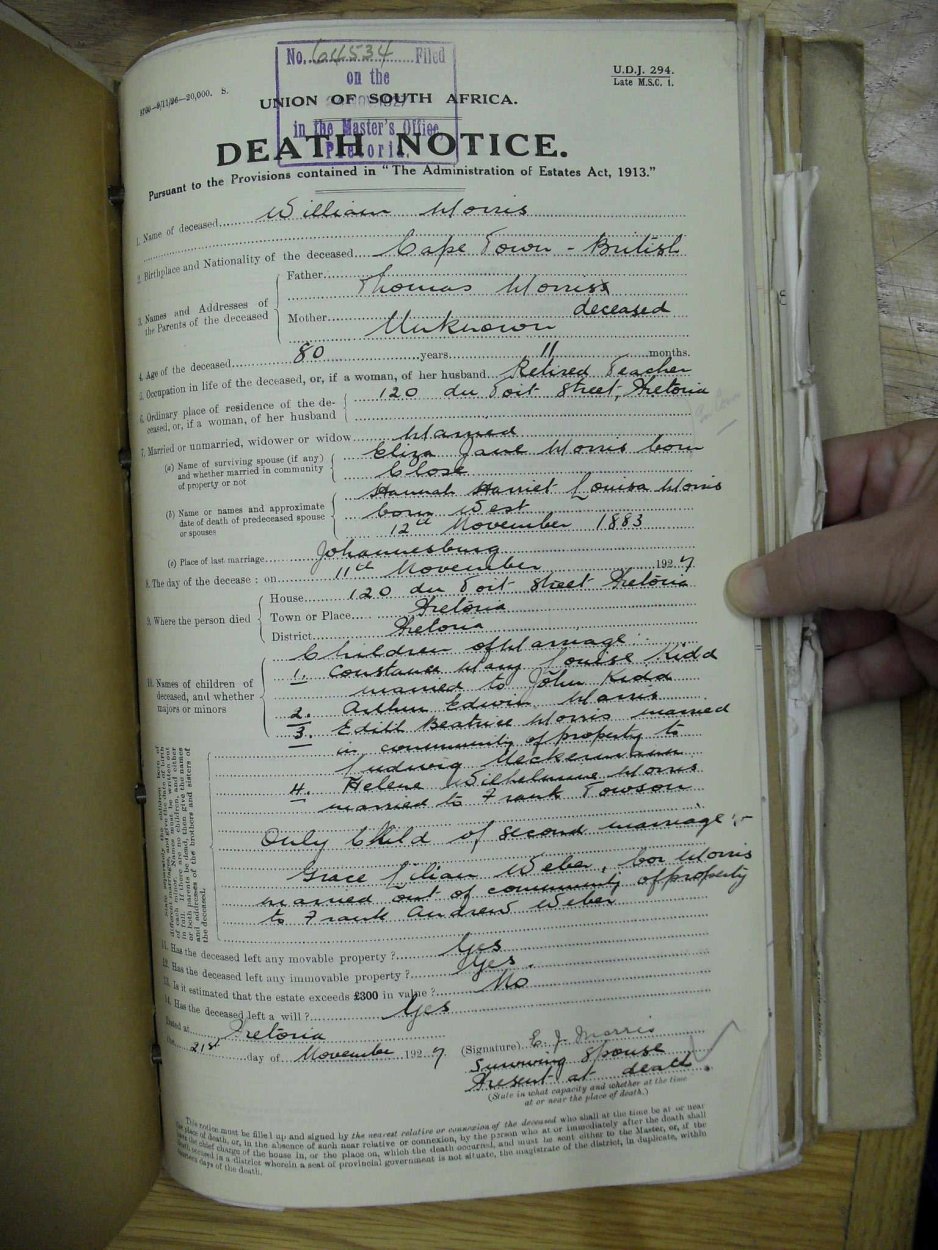 No. 64534 Filed
on the
in the Master's Office
Pretoria.
U.D.J. 294.
Late M.S.C. 1.
—9/11/26—20,000. S.
UNION OF SOUTH AFRICA.
DEATH NOTICE.
Pursuant to the Provisions contained in "The Administration of Estates Act, 1913."
1. Name of deceased William Morris
2. Birthplace and Nationality of the deceased Cape Town - British
3. Names and Addresses of the Parents of the deceased
Father Thomas Morris
deceased
Mother Unknown
4. Age of the deceased 80 years 11 months.
5. Occupation in life of the deceased, or, if a woman, of her husband Retired Teacher
6. Ordinary place of residence of the deceased, or, if a woman, of her husband
120 du Toit Street, Pretoria
7. Married or unmarried, widower or widow Married
(a) Name of surviving spouse (if any) and whether married in community of property or not
Eliza Jane Morris born
Close
(b) Name or names and approximate date of death of predeceased spouse or spouses
Hannah Harriet Louisa Morris
born West
12th November 1883
(c) Place of last marriage Johannesburg
8. The day of the decease: on 11th November 1927
9. Where the person died
House 120 du Toit Street Pretoria
Town or Place Pretoria
District Pretoria
10. Names of children of deceased, and whether majors or minors
Children of Marriage:
1. Constance Mary Louise Kidd
married to John Kidd
2. Arthur Edwin Morris
3. Edith Beatrice Morris married
in community of property to
Ludwig Meckermann
4. Helene Wilhelmine Morris
married to Frank Towson
State separately the children born of different marriages, and give the date of birth of each minor. Names must be written out in full. If there are no children, and either or both parents be dead, then give the names and addresses of the brothers and sisters of the deceased.
Only Child of second marriage:-
Grace Lilian Weber, bor Morris
married out of community of property
to Frank Andrew Weber
11. Has the deceased left any movable property? Yes
12. Has the deceased left any immovable property? Yes.
13. Is it estimated that the estate exceeds £300 in value? No
14. Has the deceased left a will? Yes
Dated at Pretoria
the 21st day of November 1927
(Signature) E. J. Morris
Surviving Spouse
Present at death.
(State in what capacity and whether at the time
or near the place of death.)
This notice must be filled up and signed by the nearest relative or connexion of the deceased who shall at the time be at or near
the place of death, or, in the absence of such near relative or connexion, by the person who at or immediately after the death shall
have the chief charge of the house in, or the place on, which the death occurred, and must be sent either to the Master, or, if the
death occurred in a district wherein a seat of provincial government is not situate, the magistrate of the district, in duplicate, within
fourteen days of the death.